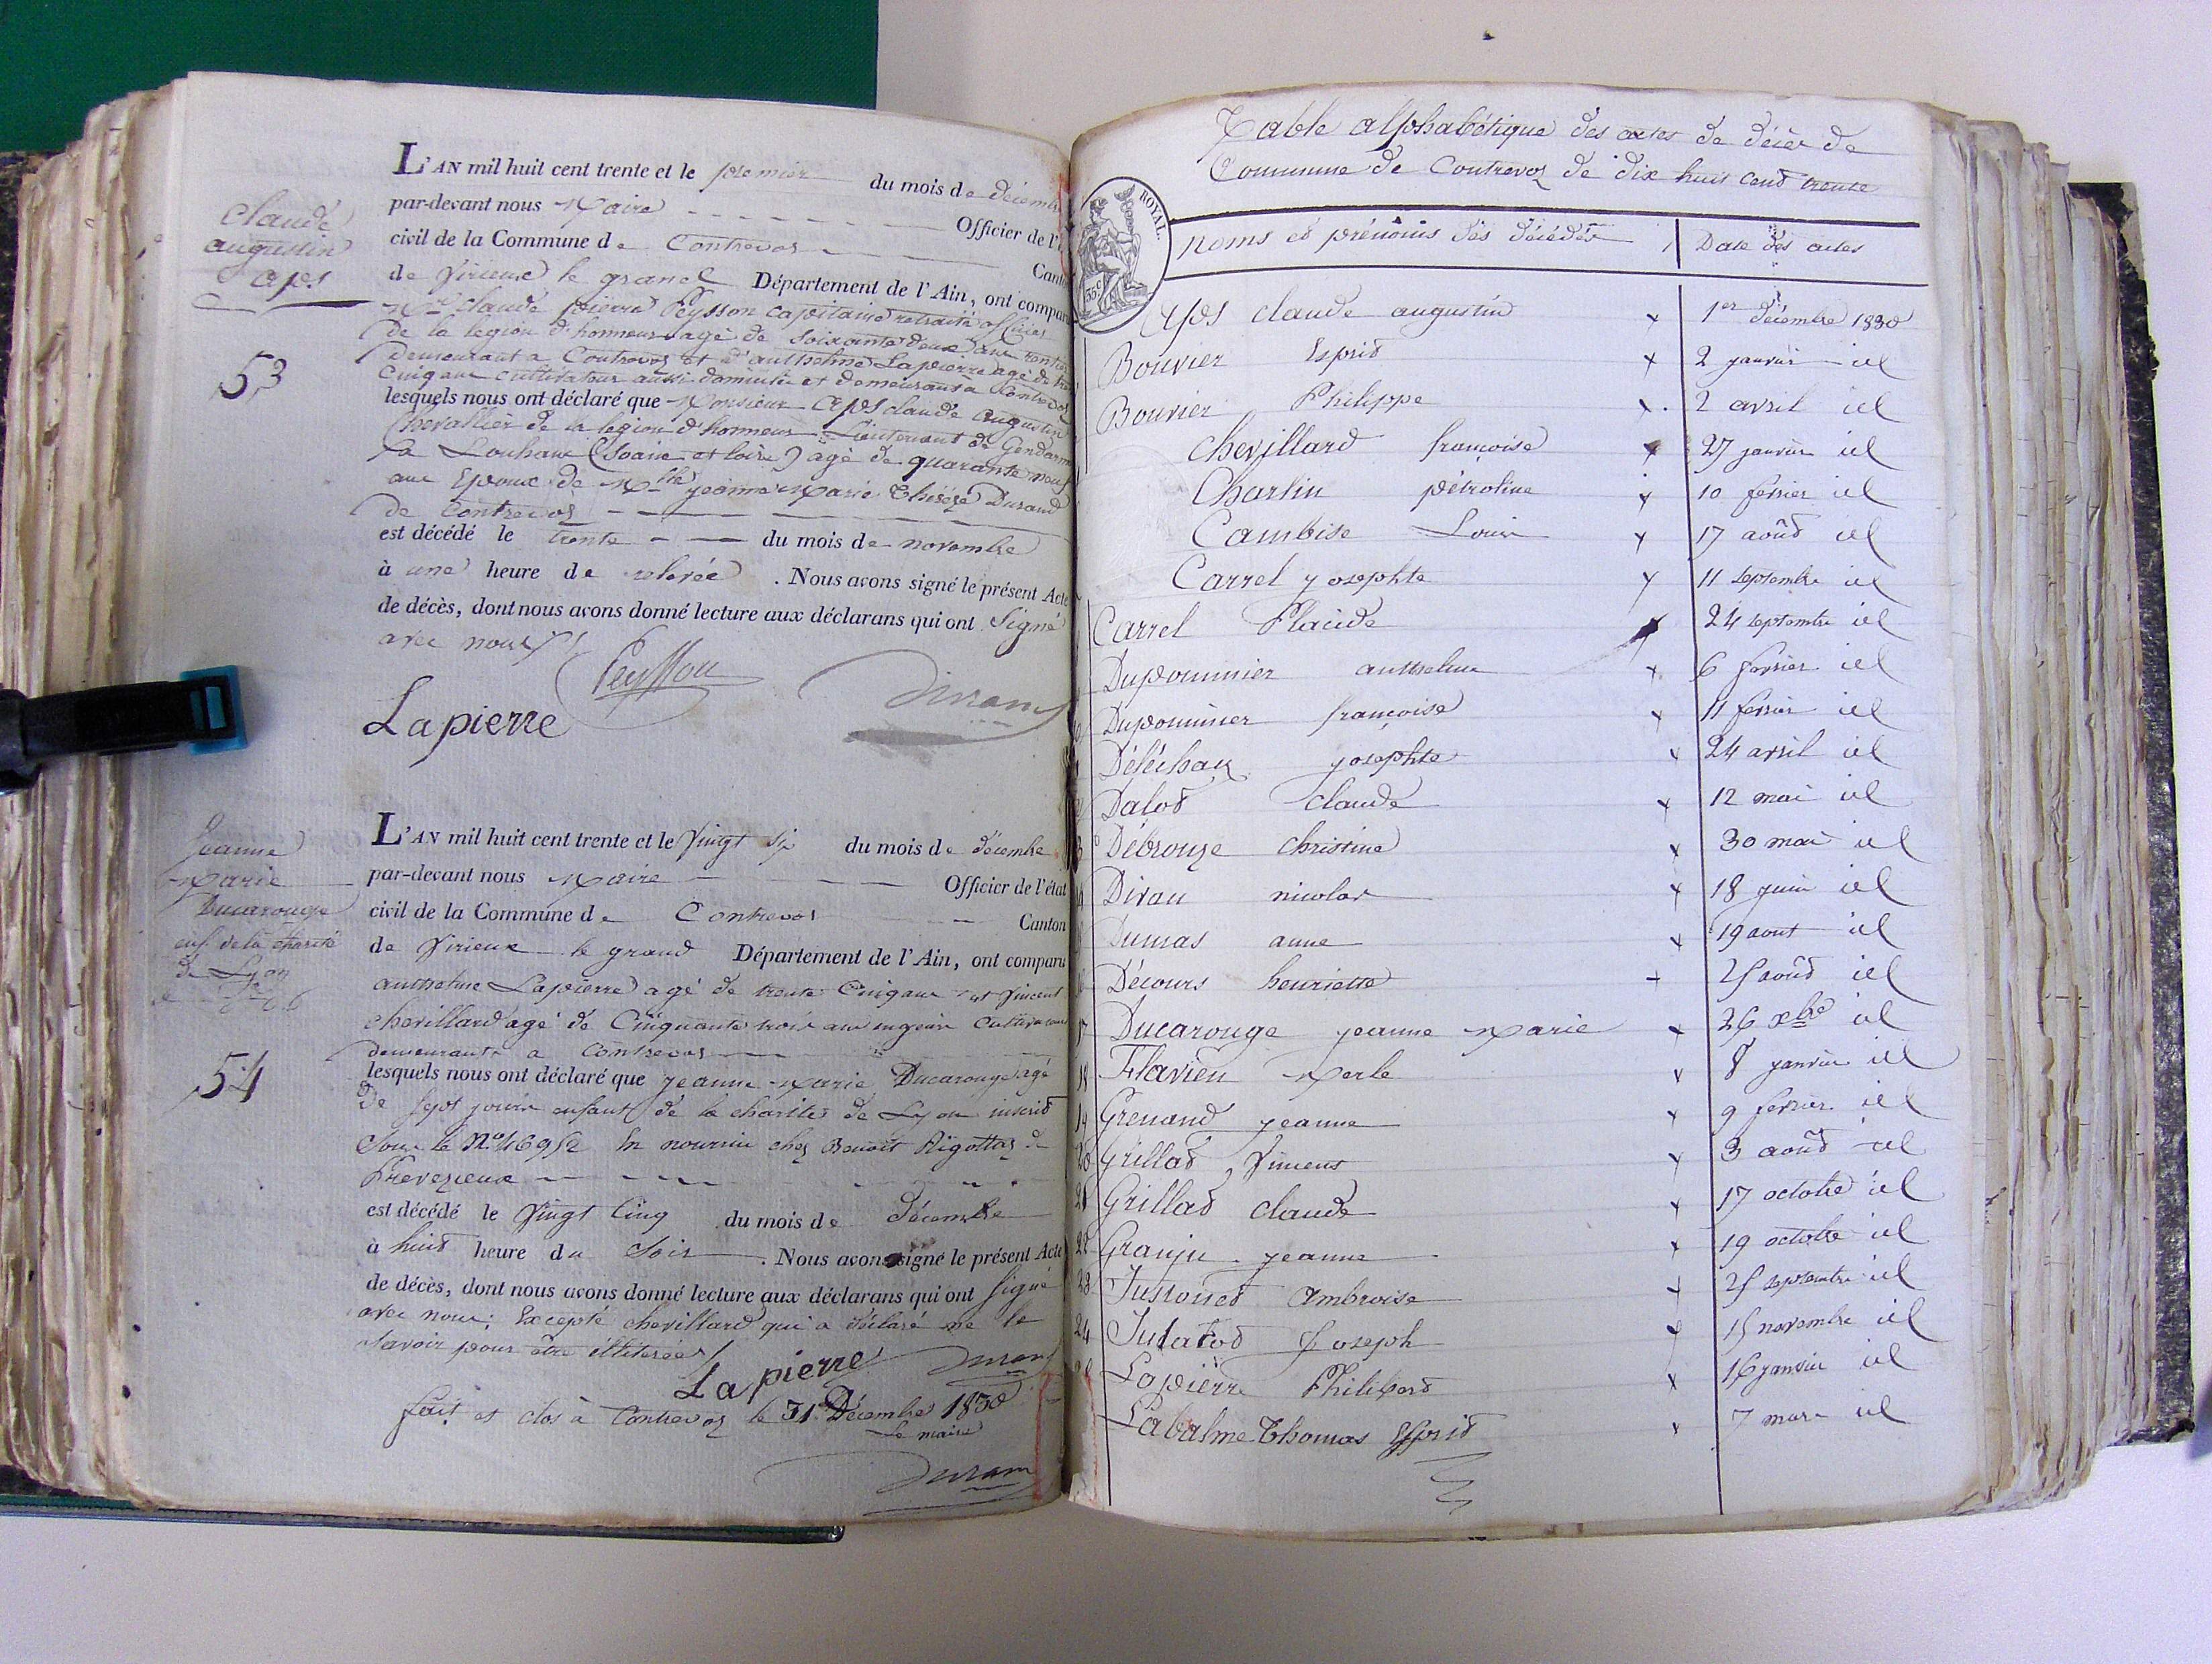 Claude
augustin
aps
53
L'AN mil huit cent trente et le premier du mois de décemb
par-devant nous Maire Officier de l'
civil de la Commune de Contrevos Cant
de Virieux le grand Département de l'Ain, ont compar
Mr Claude pierre Peysson capitaine retraité officier
de la legion d'honneur agé de soixante deux ans rentier
demeurant a Contrevoz et d'anthelme Lapierre agé de
Cinq ans cultivateur aussi domicilié et demeurant a Contrevoz
lesquels nous ont déclaré que Monsieur aps claude augustin
Chevallier de la legion d'honneur Lieutenant de Gendarm
a Louhans (Soane et loire) agé de quarante neuf
ans Epoux de Mlle jeanne Marie Thérèze Durand
de Contrevos
est décédé le trente du mois de novembre
à une heure de relevée . Nous avons signé le présent Acte
de décès, dont nous avons donné lecture aux déclarans qui ont Signé
avec nous
Peysson
Lapierre Durand
Jeanne
Marie
Ducarouge
enf. de la charité
de Lyon
54
L'AN mil huit cent trente et le Vingt six du mois de décembre
par-devant nous Maire Officier de l'état
civil de la Commune de Contrevos Canton
de Virieux le grand Département de l'Ain, ont comparu
anthelme Lapierre agé de trente Cinq ans et Vincent
chevillard agé de Cinquante trois ans cultivateurs
demeurants a Contrevos
lesquels nous ont déclaré que jeanne Marie Ducarouge agé
de sept jours enfant de la charité de Lyon inscrit
Sous le No En nourrice chez Benoit Rigottaz de
Prevezieux
est décédé le Vingt Cinq du mois de décembre
à huit heure du Soir . Nous avons signé le présent Acte
de décès, dont nous avons donné lecture aux déclarans qui ont signé
avec nous; Excepté chevillard qui a déclaré ne le
Savoir pour être illiteré
Lapierre Durand
fait et clos à Contrevoz le 31 Décembre 1830
Le maire
Durand
Table alphabétique des actes de décès de
Commune de Contrevoz de dix huit cent trente
ROYAL.
35c
Noms et prénoms des décédés Date des actes
Aps claude augustin x 1er décembre 1830
Bouvier Esprit x 2 janvier id
Bouvier Philippe x 2 avril id
Chevillard françoise x 27 janvier id
Charlin pétroline x 10 fevrier id
Cambise Louis x 17 août id
Carrel josephte x 11 septembre id
Carrel Placide x 24 septembre id
Dupommier anthelme x 6 fevrier id
Dupommier françoise x 11 fevrier id
Déléchaz josephte x 24 avril id
Dalod claude x 12 mai id
Débrouze christine x 30 mai id
14 Divau nicolas x 18 juin id
Dumas anne x 19 aout id
Décours henriette x 25 août id
17 Ducarouge jeanne Marie x 26 xbre id
18 Flavien Merle x 8 janvier id
19 Grenand jeanne x 9 fevrier id
20 Grillad Vincent x 3 août id
21 Grillad claude x 17 octobre id
22 Granju jeanne x 19 octobre id
23 Jussoued Ambroise x 25 septembre id
24 Jutatod Joseph x 15 novembre id
Lapierre Philibert x 16 janvier id
Labalme Thomas Esprit x 7 mars id